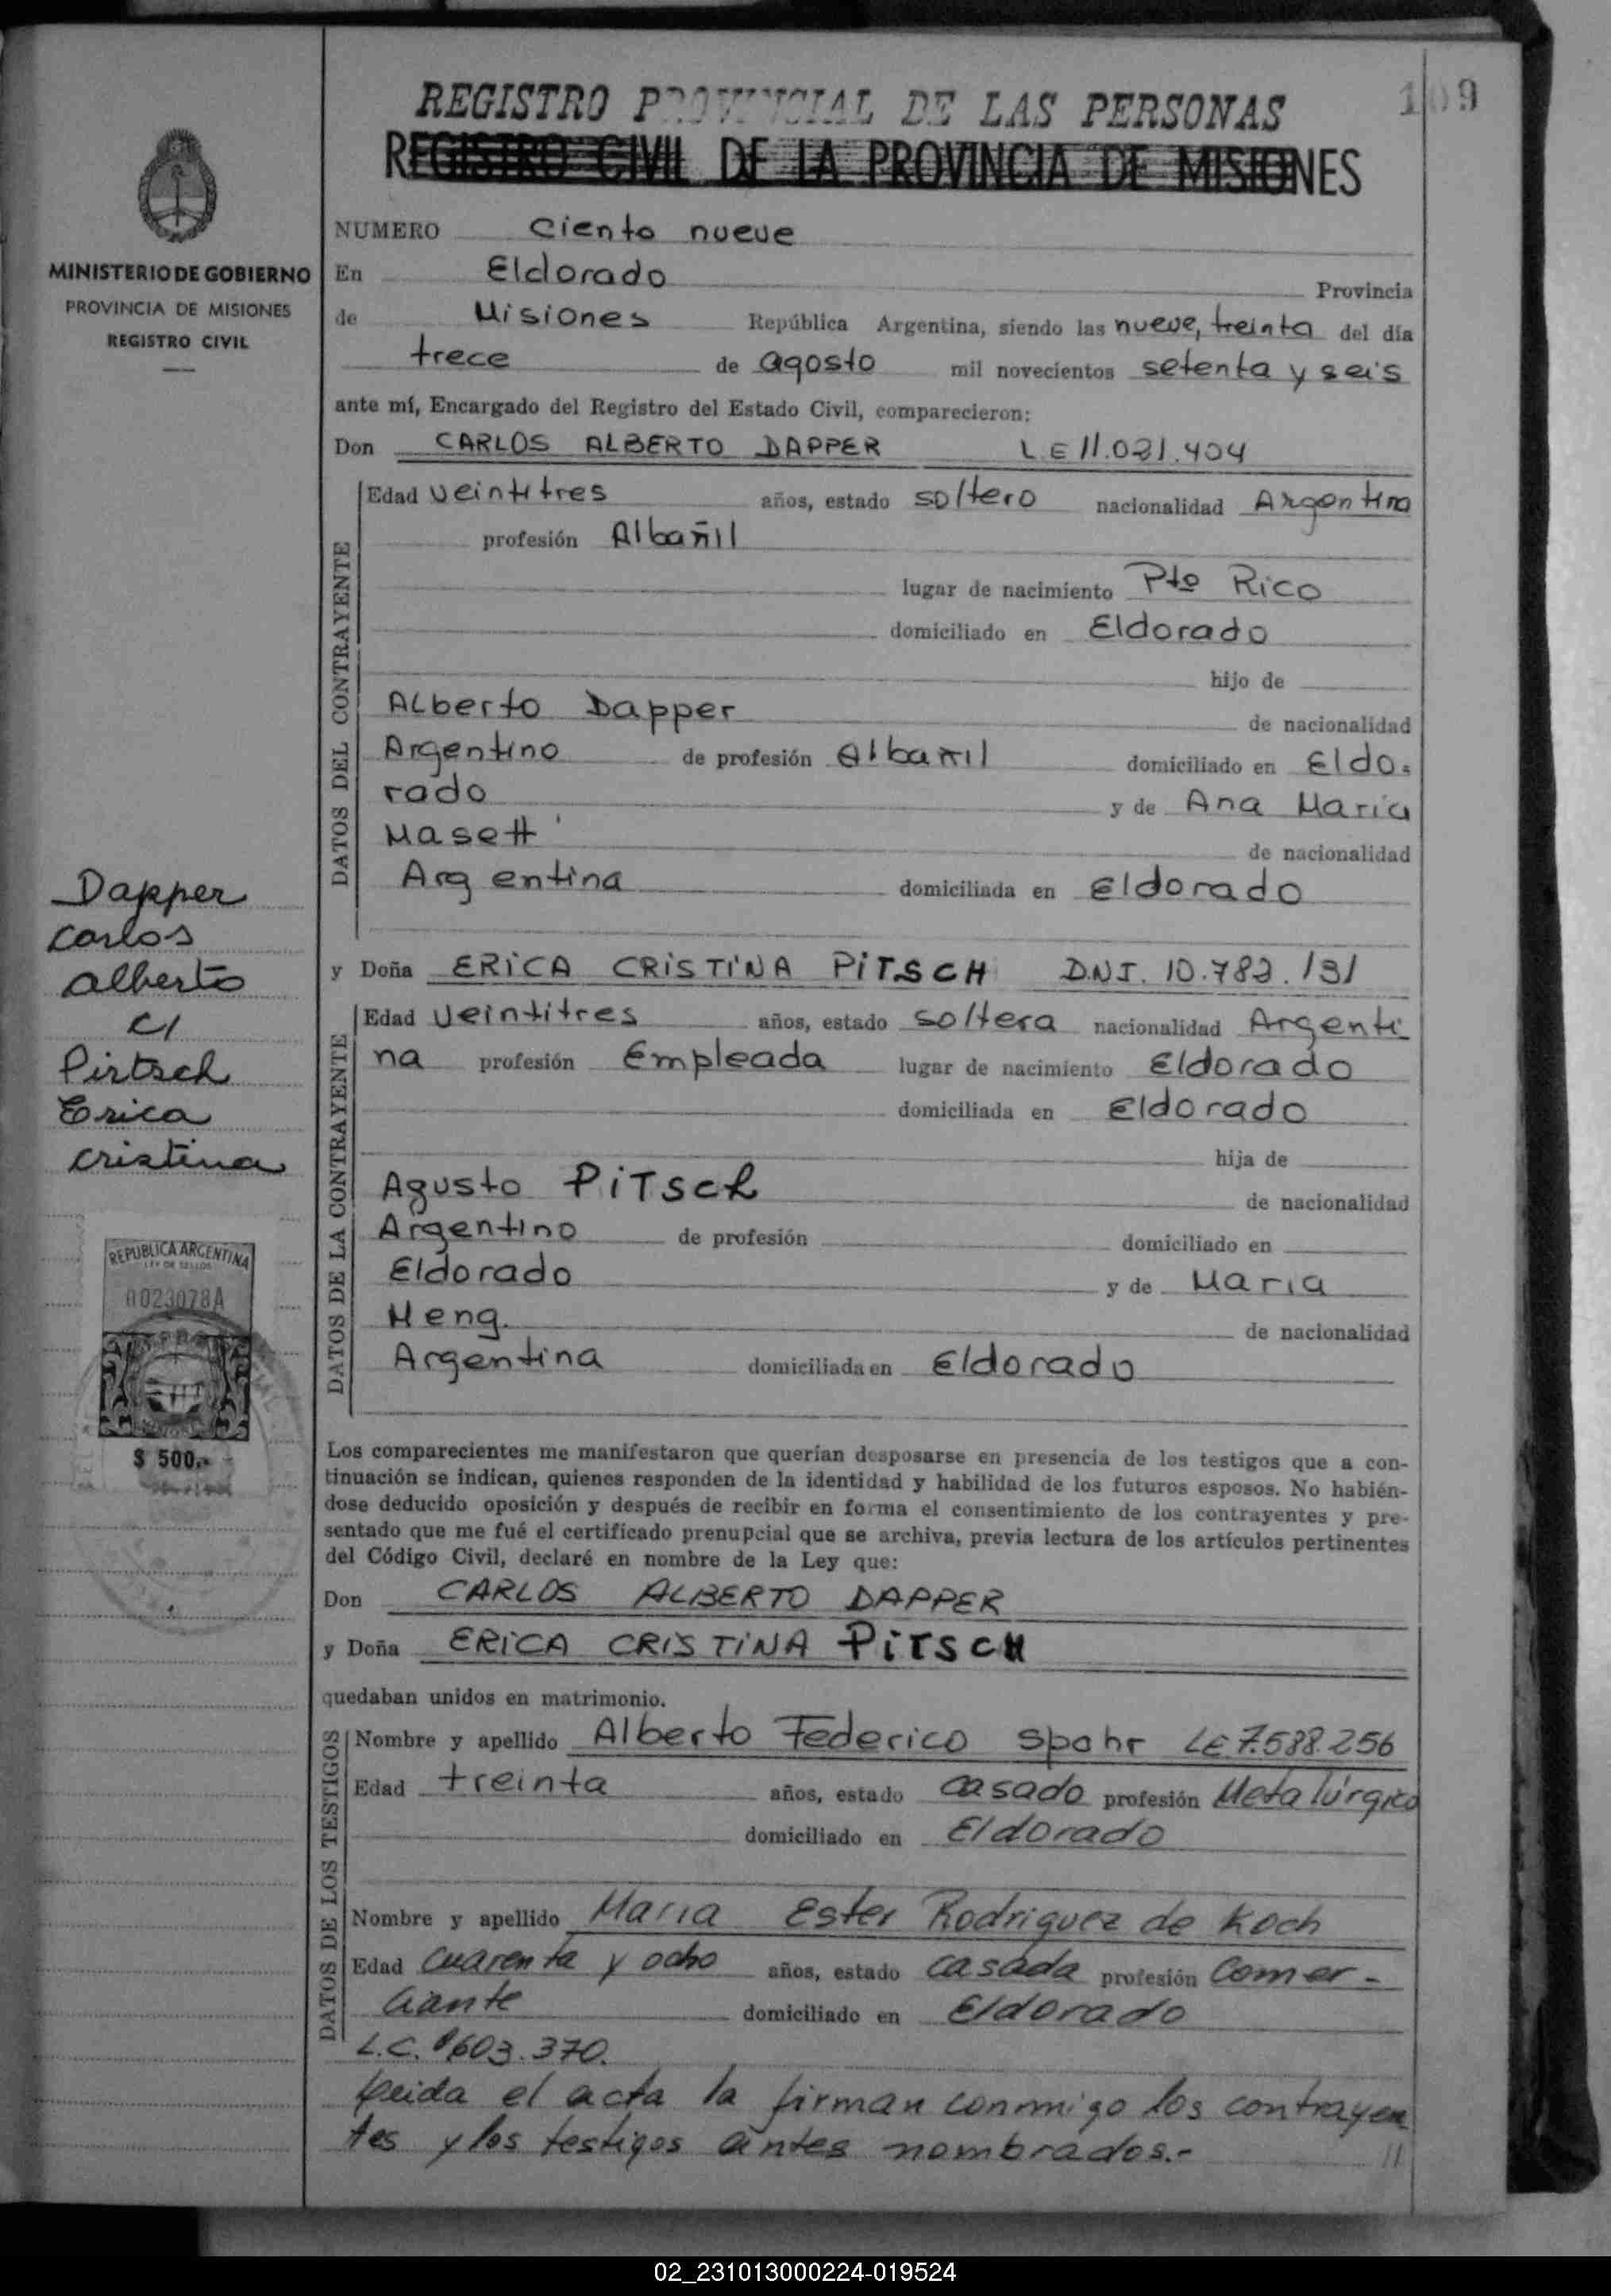 REGISTRO PROVINCIAL DE LAS PERSONAS
109
REGISTRO CIVIL DE LA PROVINCIA DE MISIONES
MINISTERIO DE GOBIERNO
PROVINCIA DE MISIONES
REGISTRO CIVIL
NUMERO ciento nueve
En Eldorado Provincia
de Misiones República Argentina, siendo las nueve, treinta del día
trece de agosto mil novecientos setenta y seis
ante mí, Encargado del Registro del Estado Civil, comparecieron:
Don CARLOS ALBERTO DAPPER L E 11.021.404
DATOS DEL CONTRAYENTE
Edad veintitres años, estado soltero nacionalidad Argentina
profesión Albañil
lugar de nacimiento Pto Rico
domiciliado en Eldorado
hijo de
Alberto Dapper de nacionalidad
Argentino de profesión Albañil domiciliado en Eldo-
rado y de Ana Maria
Masett de nacionalidad
Argentina domiciliada en Eldorado
Dapper
Carlos
alberto
c/
Pirtsch
Erica
cristina
y Doña ERICA CRISTINA PITSCH D.N.I. 10.782.131
DATOS DE LA CONTRAYENTE
Edad veintitres años, estado soltera nacionalidad Argenti
na profesión Empleada lugar de nacimiento Eldorado
domiciliada en Eldorado
hija de
Agusto PITSch de nacionalidad
Argentino de profesión domiciliado en
Eldorado y de Maria
Heng. de nacionalidad
Argentina domiciliada en Eldorado
REPUBLICA ARGENTINA
LEY DE SELLOS
0023078A
$ 500.-
Los comparecientes me manifestaron que querían desposarse en presencia de los testigos que a con-
tinuación se indican, quienes responden de la identidad y habilidad de los futuros esposos. No habién-
dose deducido oposición y después de recibir en forma el consentimiento de los contrayentes y pre-
sentado que me fué el certificado prenupcial que se archiva, previa lectura de los artículos pertinentes
del Código Civil, declaré en nombre de la Ley que:
Don CARLOS ALBERTO DAPPER
y Doña ERICA CRISTINA PITSCH
quedaban unidos en matrimonio.
DATOS DE LOS TESTIGOS
Nombre y apellido Alberto Federico Spohr LE 7.588.256
Edad treinta años, estado casado profesión Metalúrgico
domiciliado en Eldorado
Nombre y apellido Maria Ester Rodriguez de Koch
Edad cuarenta y ocho años, estado casada profesión Comer-
ciante domiciliado en Eldorado
L.C. 1603.370.
Leida el acta la firman conmigo los contrayen
tes y los testigos antes nombrados.- //
02_231013000224-019524